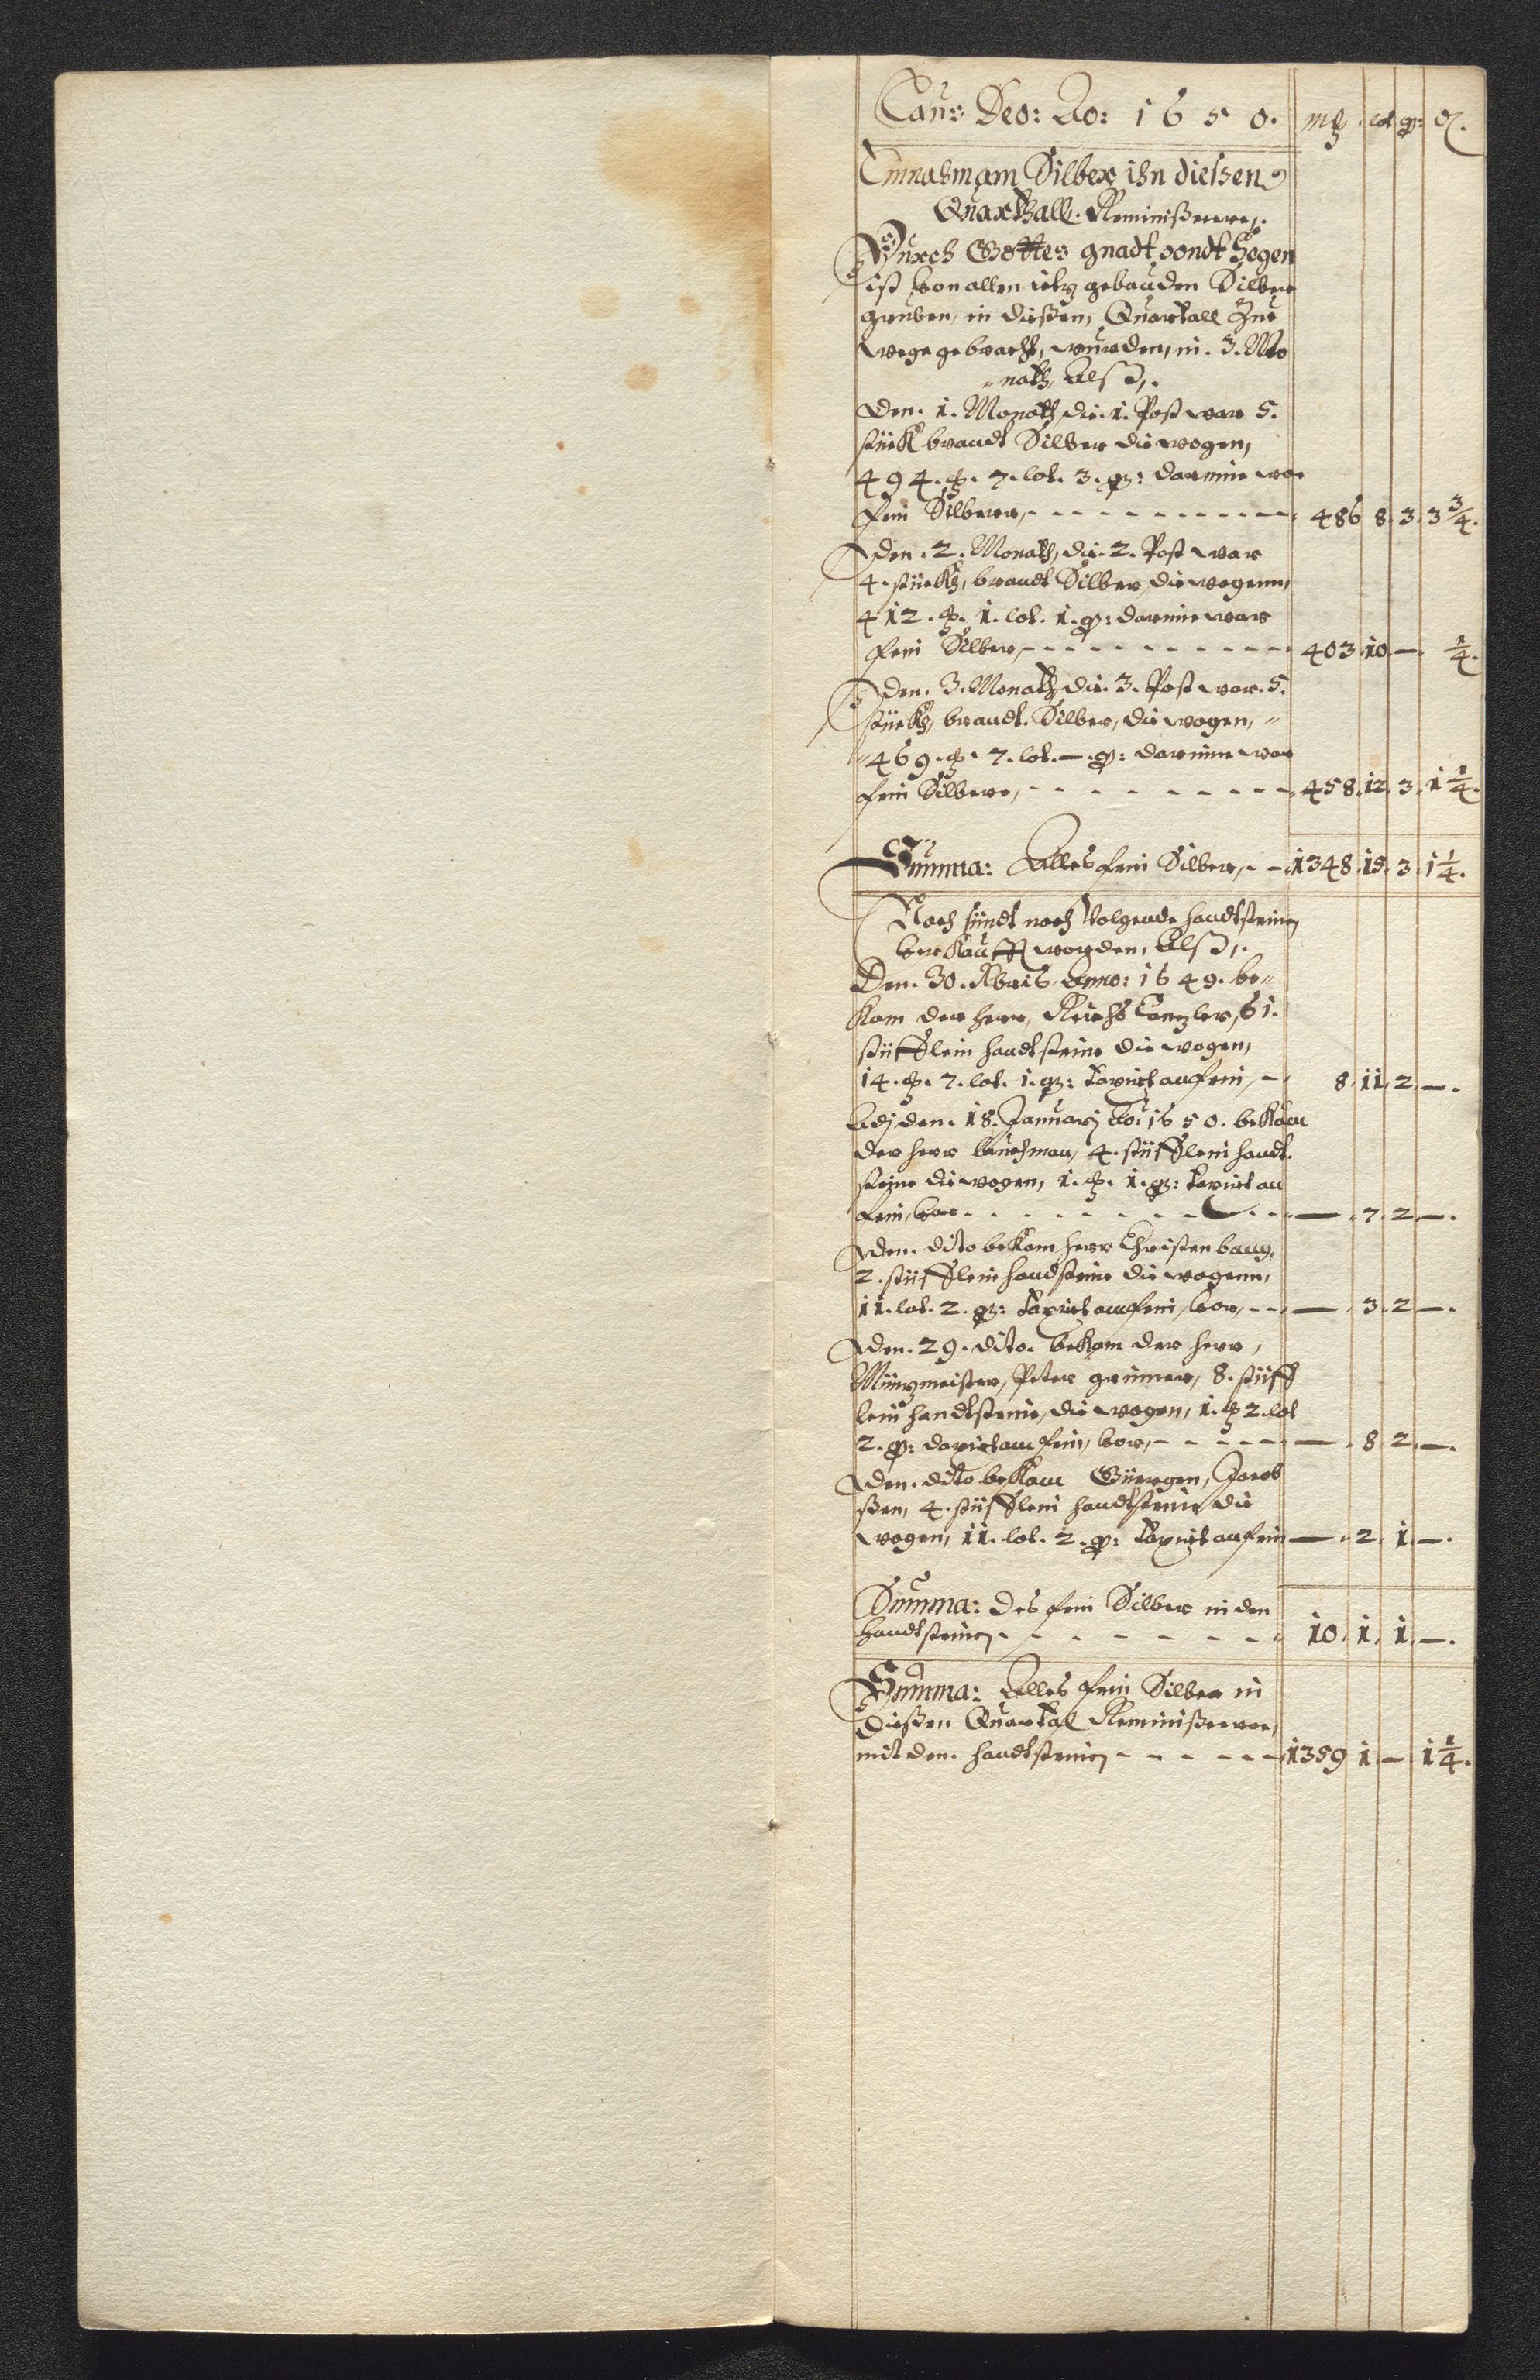 Laus Deo: Ao: 1650. mk lot q: d.
Einnahm am Silber ihn dießen
Quarthall. Reminißerre,.
Durch Gottes gnadt vondt Segen
ist von allen itz gebauden Silber
gruben, in dießen, Quartall Zue
wege gebracht, wurden, in. 3. Mo
"nath, Alß,.
Den. 1. Monath, die. 1. Post war 5.
stück brandt Silber die wogen,
494. mk. 7. lot. 3. q: darinne war
fein Silber, - - - - - - - - - - - 486 8. 3. 3 3/4.
Den. 2. Monath, die. 2. Post war
4. stückh, brandt Silber, die wogenn,
412. mk. 1. lot. 1. q: darinne war
fein Silber, - - - - - - - - - - - 403. 10. — 1/4.
Den. 3. Monath, die. 3. Post war. 5.
stückh, brandt. Silber, die wogen, "
"469. mk. 7. lot. —. q: darinne war
fein Silber, - - - - - - - - - 458. 12. 3. 1 1/4.
Summa: Alles fein Silber, - - 1348. 15. 3. 1 1/4.
Noch sindt noch Volgende handtsteinen
verkaufft worden, Alß,.
Den. 30. Anno: 1649. be"
kam der herr, Reichs Cantzler, 61.
stüfflein handtsteine die wogen,
14. mk. 7. lot. 1. q: taxirt an fein, - 8. 11. 2. —.
Adj den. 18. Januarj Ao: 1650. bekam
der herr 4. stüfflein handt.
steine die wogen, 1. mk. 1. q: taxirt an
fein, vor - - - - - - - - — 7. 2. —.
Den. dito bekam herr Christen
2. stüfflein handsteine die wogenn,
11. lot. 2. q: taxirt an fein, vor, - - — 3. 2. —.
Den. 29. dito. bekam der herr,
Müntzmeister, Peter grüner, 8. stüff
lein handtsteine, die wogen, 1. mk 2. lot
2. q: daxirt an fein, vor, - - - - — 8. 2. —.
Den. dito bekam Güergen, Jacob
ßen, 4. stüfflein handtsteine die
wogen, 11. lot. 2. q: taxirt an fein — 2. 1. —.
Summa: des fein Silber in den
handtsteinen - - - - - - - 10. 1. 1. —.
Summa: Alles fein Silber in
dießen Quartal Reminißerre,
mit den. handtsteinen - - - - - 1359 1. — 1 1/4.